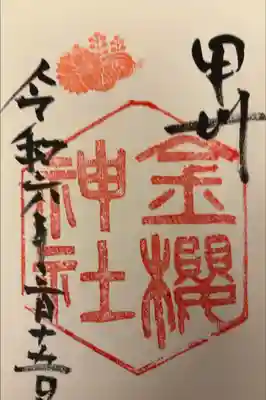 甲州
金櫻
神社
令和六年一月十五日